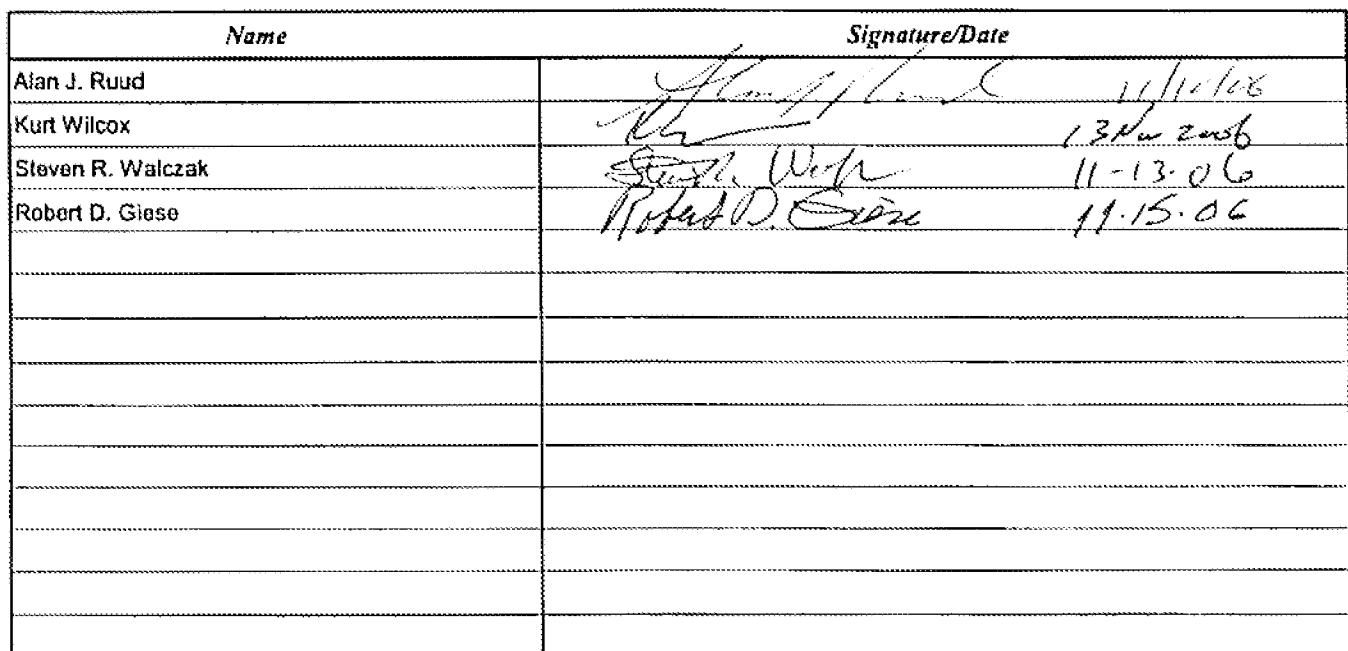 Name Signature/Date
Alan J. Ruud
Kurt Wilcox 13 Nov 2006
Steven R. Walczak 11-13-06
Robert D. Giese Robert D. Giese 11-15-06